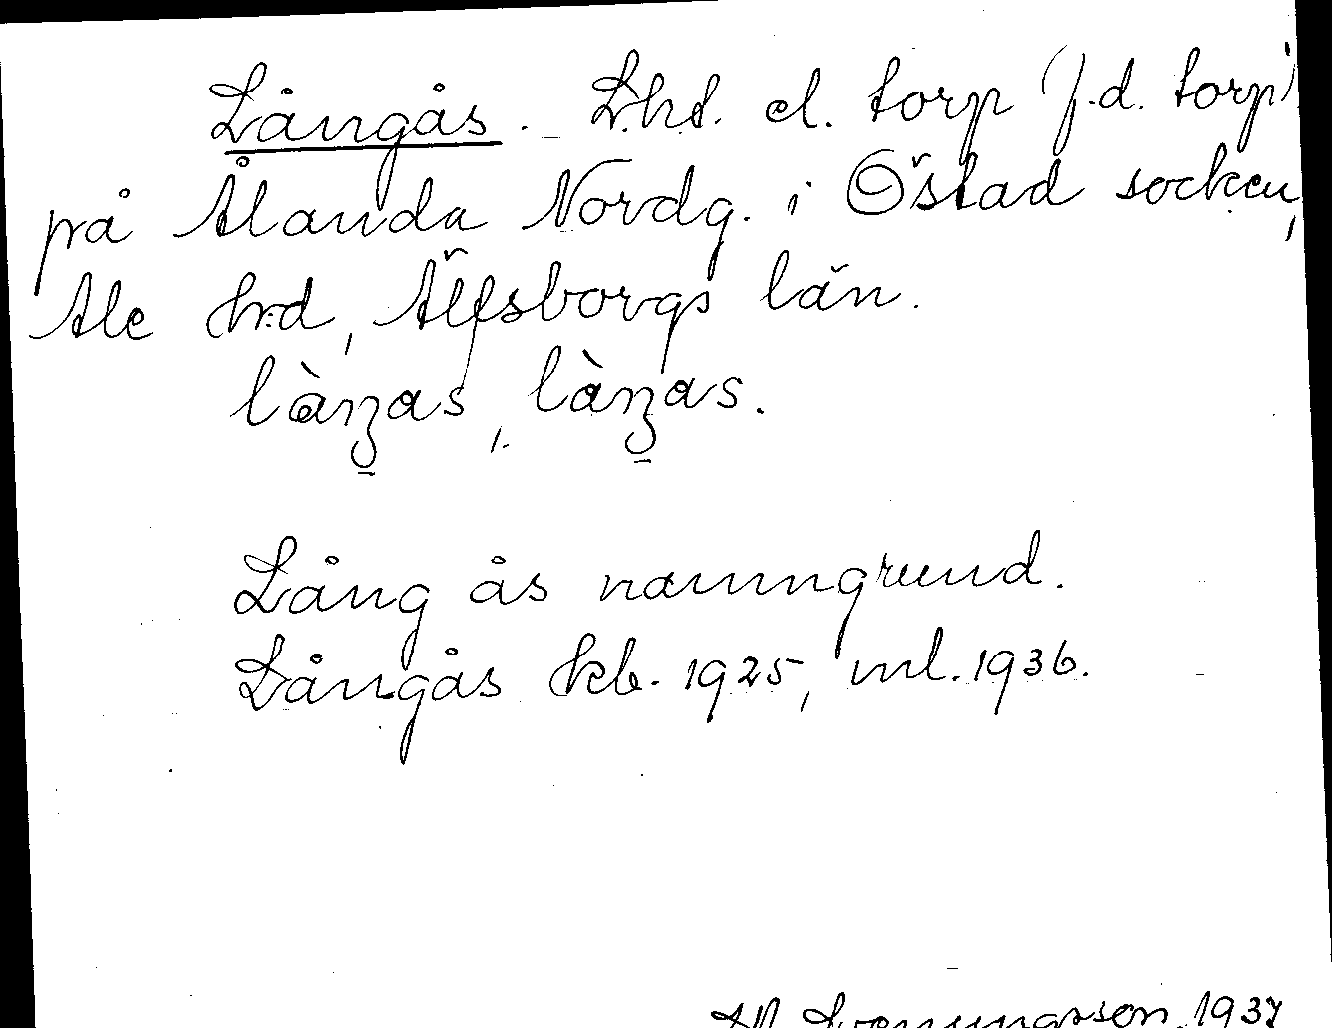 Långås. Lht. el. torp (f.d. torp)
på Ålanda Nordg. i Östad socken,
Ale hrd, Älfsborgs län.
làŋ̱as, làŋ̱as.
Lång ås namngrund.
Långås kb. 1925, ml. 1936.
1937